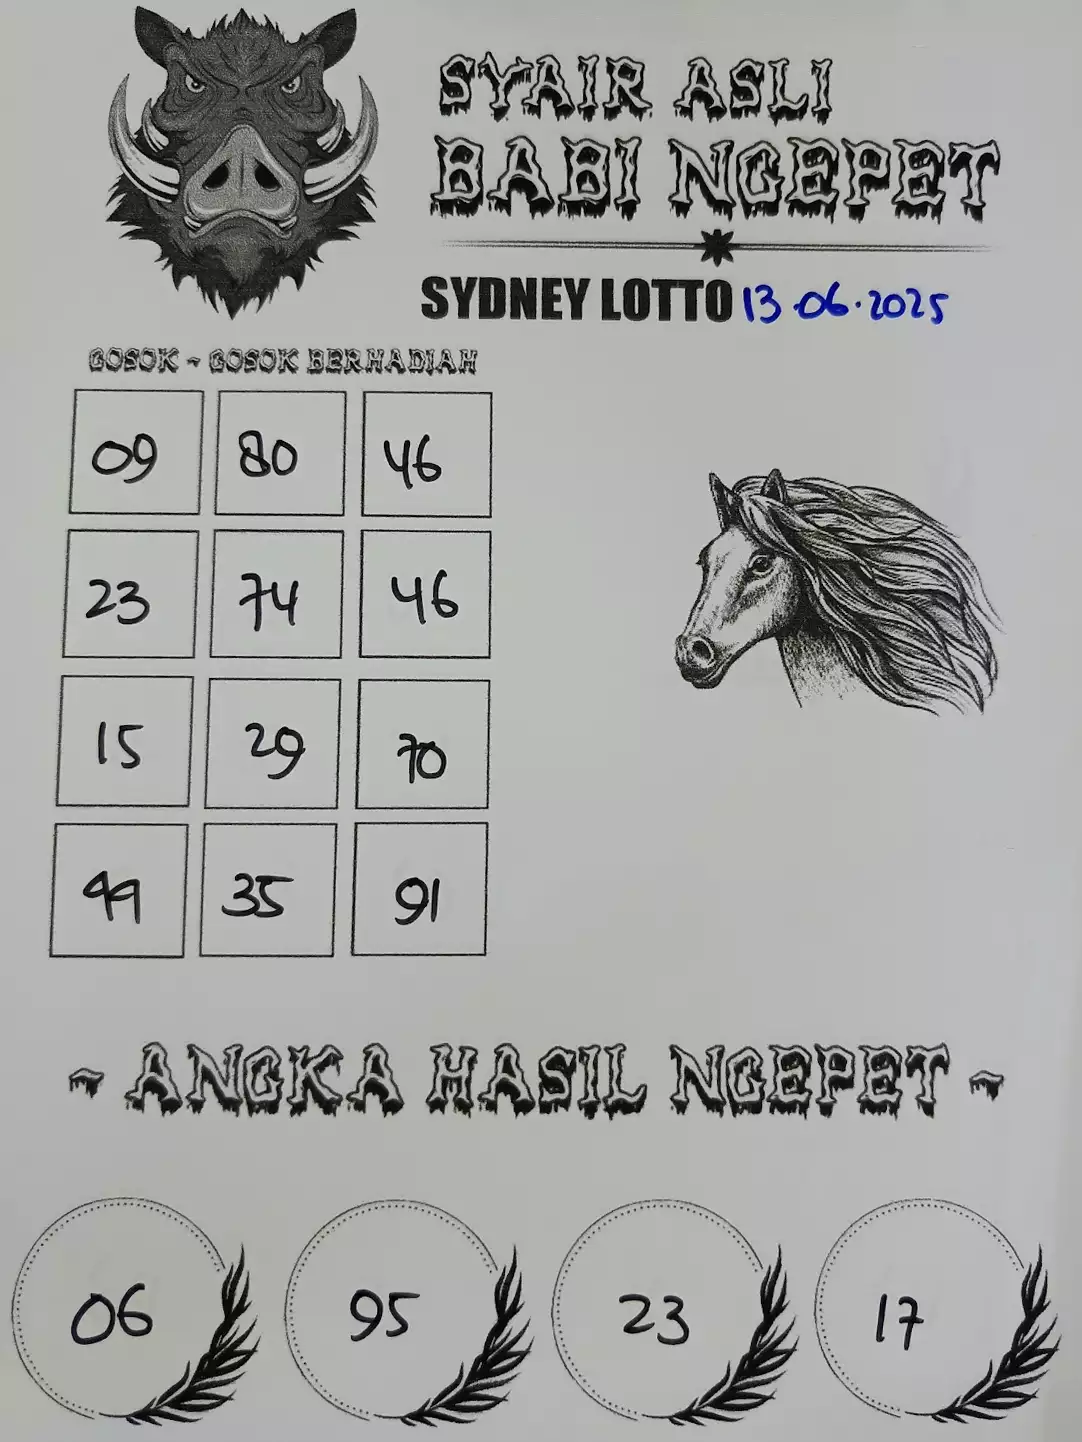 SYAIR ASLI
BABI NGEPET
SYDNEY LOTTO 13.06.2025
GOSOK - GOSOK BERHADIAH
09 80 46
23 74 46
15 29 70
49 35 91
~ ANGKA HASIL NGEPET ~
06 95 23 17